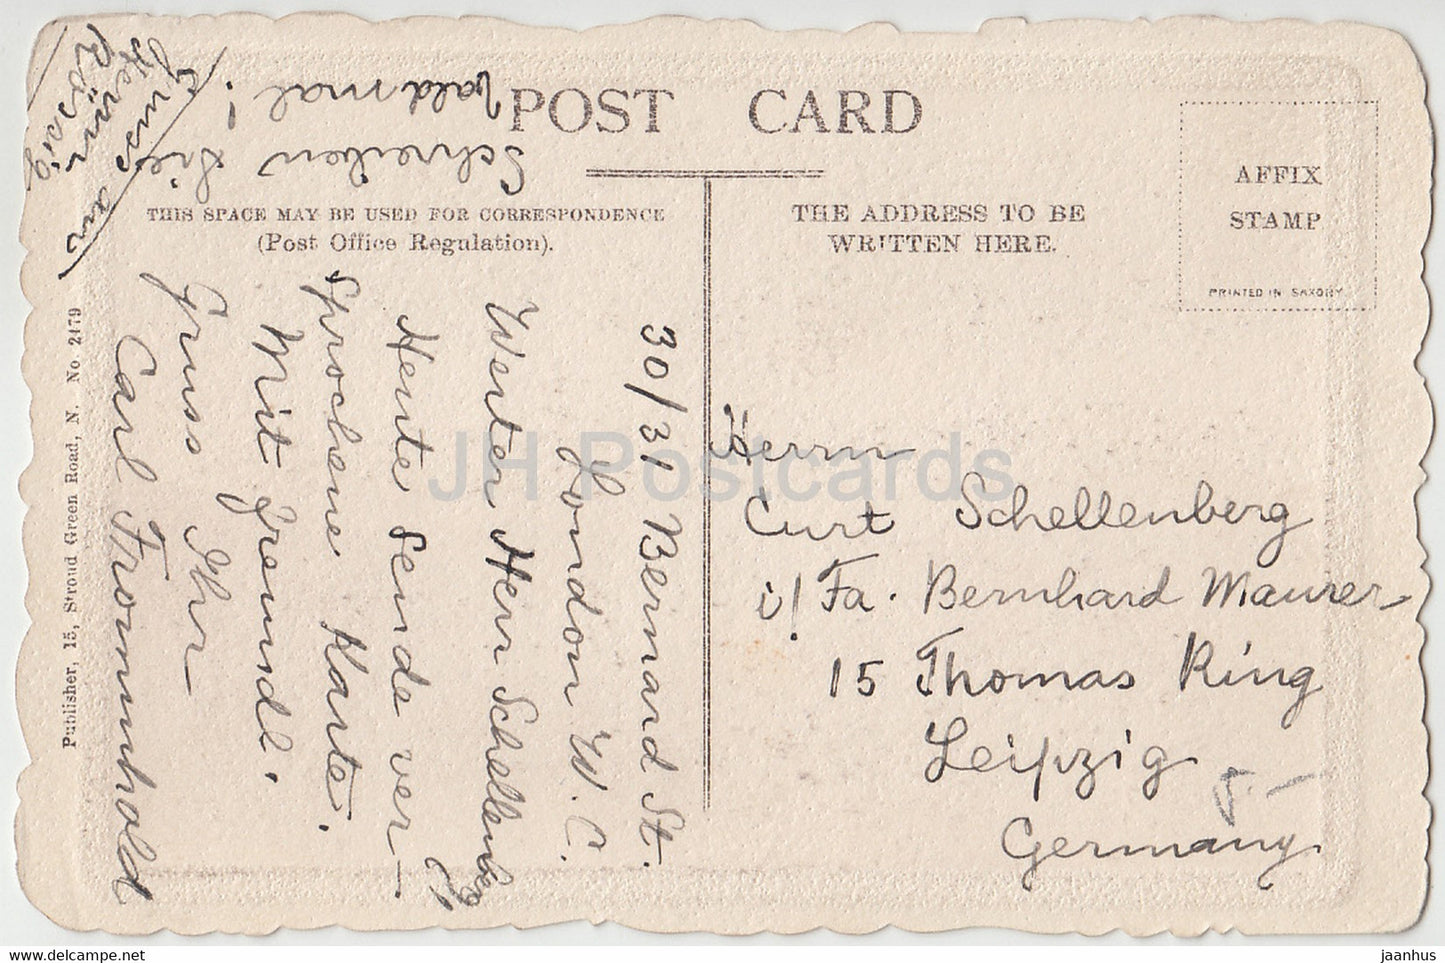 POST CARD
THIS SPACE MAY BE USED FOR CORRESPONDENCE
(Post Office Regulation).
THE ADDRESS TO BE
WRITTEN HERE.
AFFIX
STAMP
PRINTED IN SAXONY
30/31 Bernard St.
London W. C.
Werter Herr Schellenberg!
Heute Sende ver-
sprochene Karte.
Mit Freundl.
Gruss Ihr
Carl Frommhold
Schreiben Sie
bald mal!
Gruss an
Herrn
Rössig
Herrn
Curt Schellenberg
i/ Fa. Bernhard Maurer
15 Thomas Ring
Leipzig
Germany
Publisher, 15, Stroud Green Road, N. No 2479
JH Postcards
www.delcampe.net
jaanhus